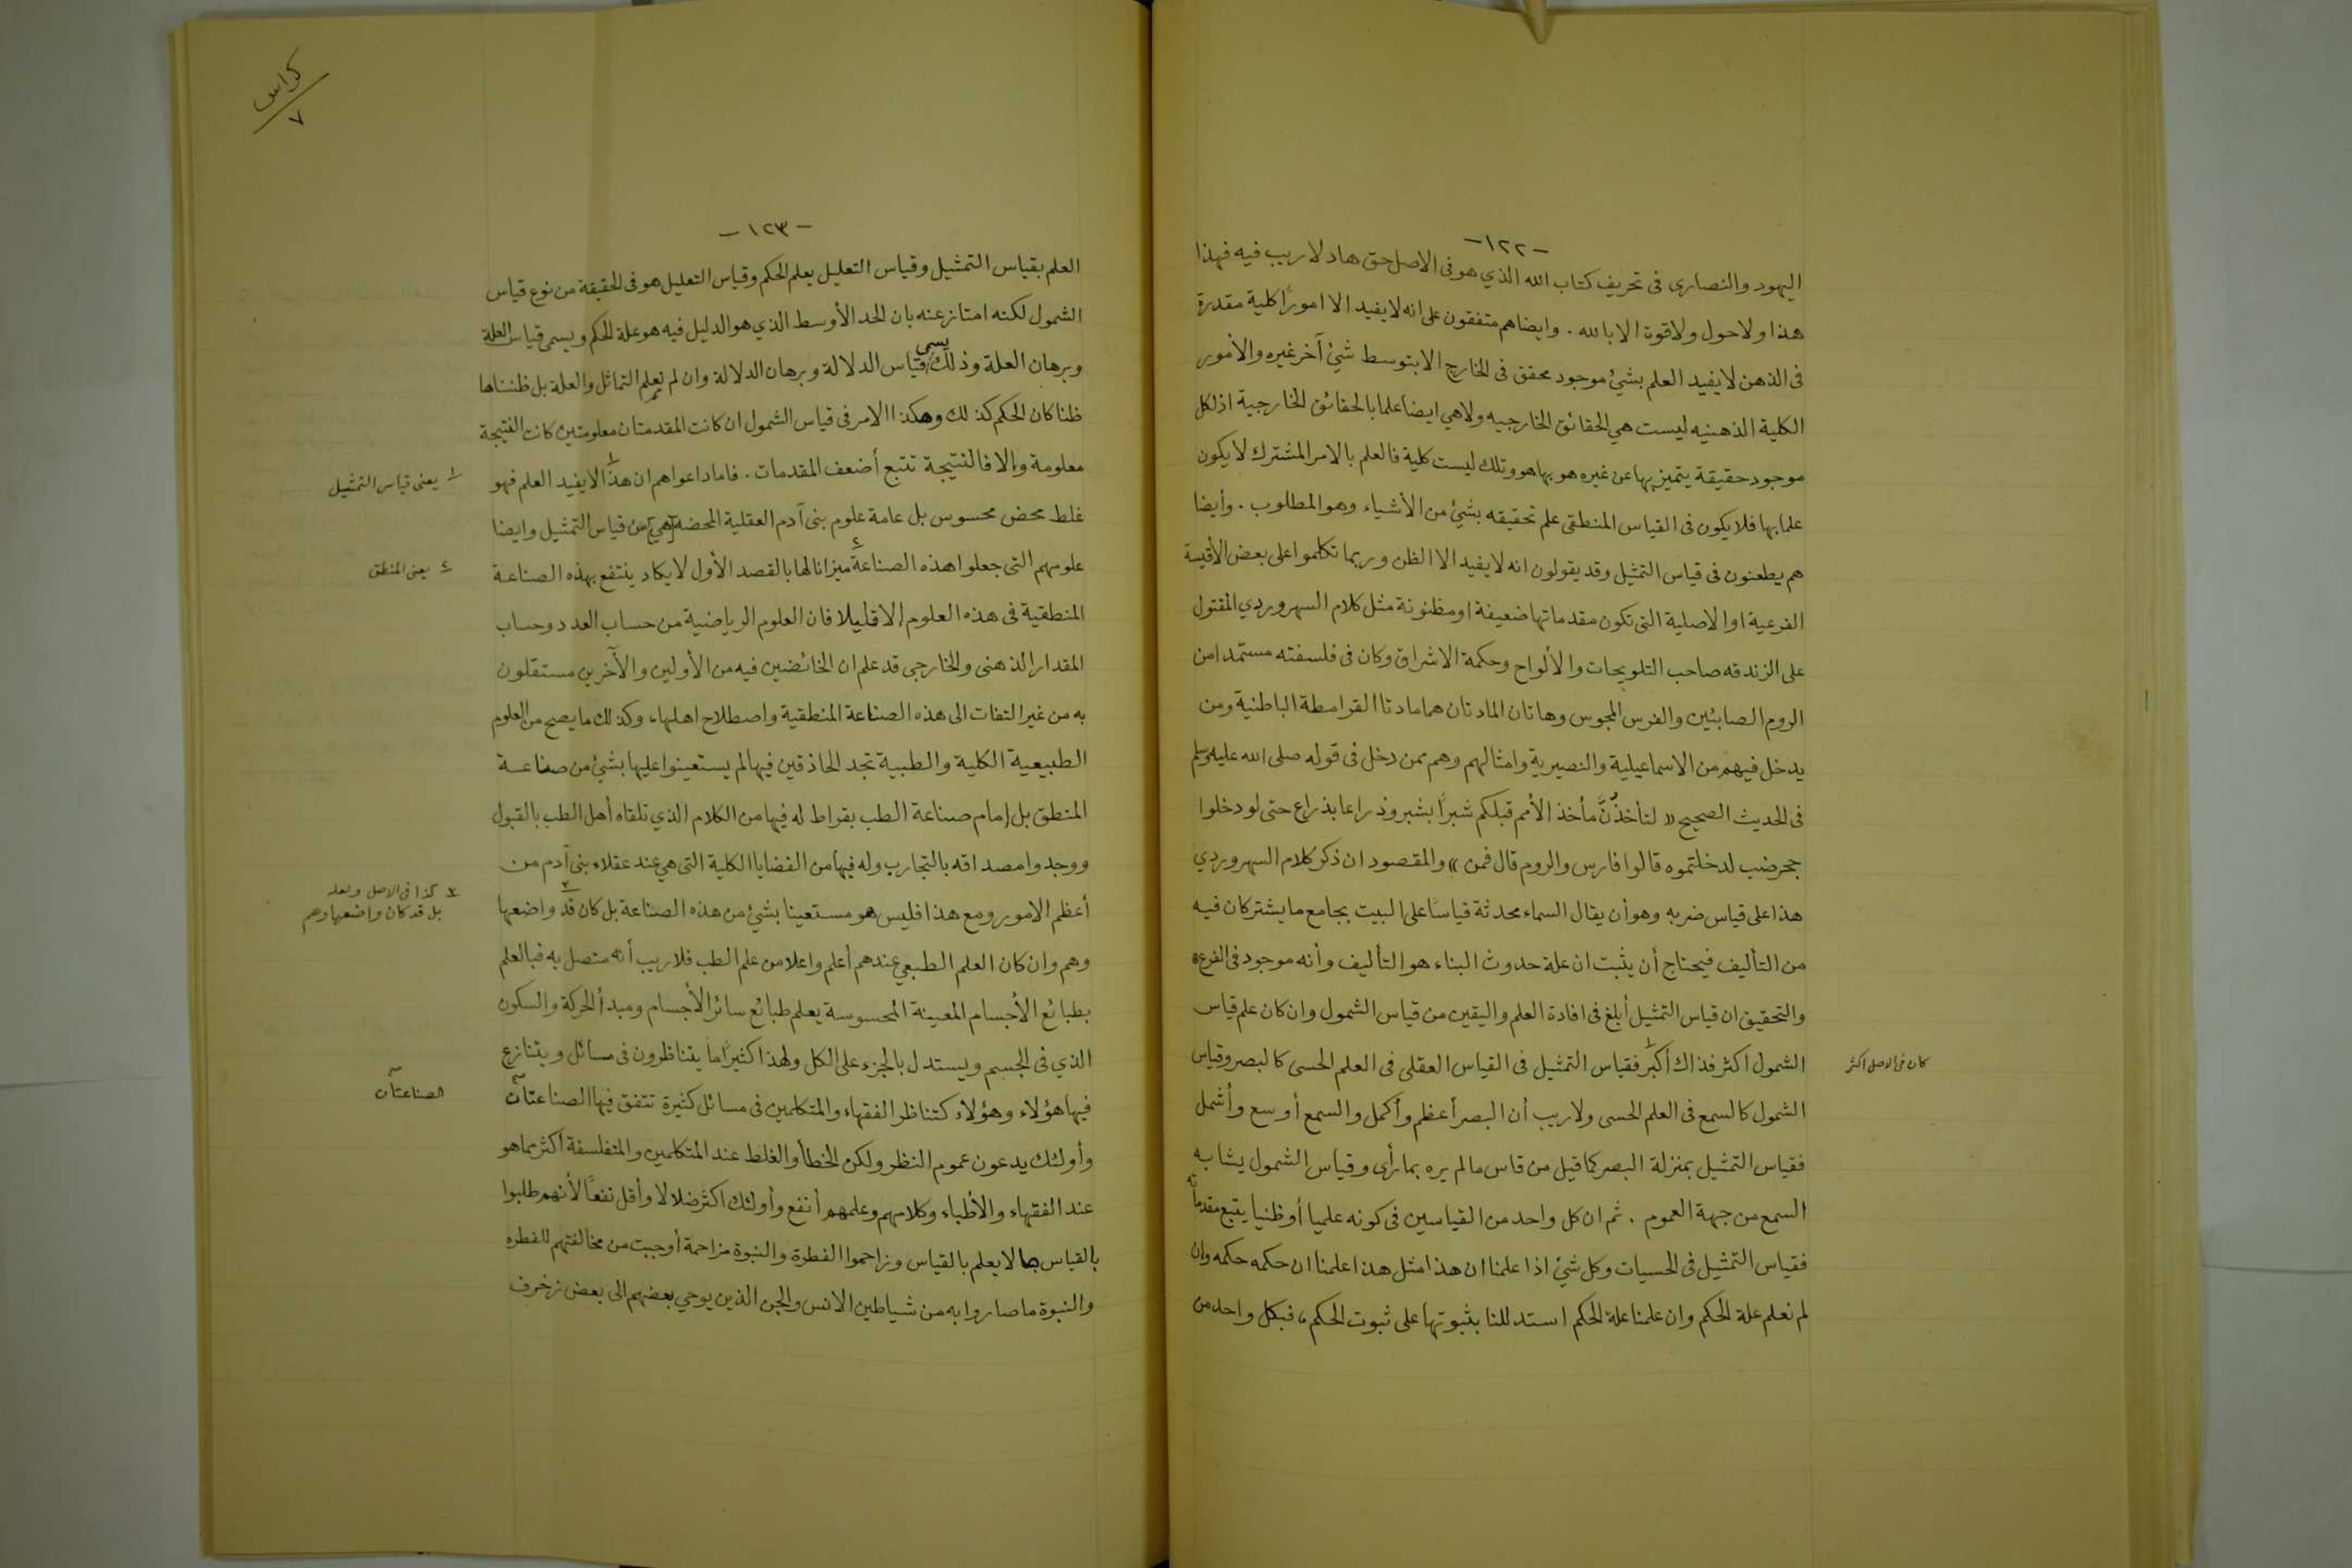 -١٢٢-
اليهود والنصارى فى تحريف كتاب الله الذي هو فى الاصل حق هاد لا ريب فيه فهذا
هذا ولا حول ولا قوة الا بالله . وايضا هم متفقون على انه لا يفيد الا امورًا كلية مقدرة
فى الذهن لا يفيد العلم بشئ موجود محقق فى الخارج الا بتوسط شئ آخر غيره والأمور
الكلية الذهنيه ليست هي الحقائق الخارجيه ولا هي ايضا علما بالحقائق الخارجية اذ لكل
موجود حقيقة يتميز بها عن غيره هو بها هو وتلك ليست كلية فالعلم بالامر المشترك لا يكون
علما بها فلا يكون فى القياس المنطقى علم تحقيقه بشئ من الأشياء وهو المطلوب . وأيضا
هم يطعنون فى قياس التمثيل وقد يقولون انه لا يفيد الا الظن وربما تكلموا على بعض الأقيسة
الفرعية او الاصلية التى تكون مقدماتها ضعيفة او مظنونة مثل كلام السهروردي المقتول
على الزندقه صاحب التلويحات والألواح وحكمة الاشراق وكان فى فلسفته مستمدا من
الروم الصابئين والفرس المجوس وهاتان المادتان هما مادتا القرامطة الباطنية ومن
يدخل فيهم من الاسماعيلية والنصيرية وامثالهم وهم ممن دخل فى قوله صلى الله عليه وسلم
فى الحديث الصحيح « لتأخذُنَّ مأخذ الأمم قبلكم شبرًا بشبر وذراعا بذراع حتى لو دخلوا
جحر ضب لدخلتموه قالوا فارس والروم قال فمن » والمقصود ان ذكر كلام السهروردي
هذا على قياس ضربه وهو أن يقال السماء محدثة قياسًا على البيت بجامع ما يشتركان فيه
من التأليف فيحتاج أن يثبت ان علة حدوث البناء هو التأليف وأنه موجود فى الفرع ه
والتحقيق ان قياس التمثيل أبلغ فى افادة العلم واليقين من قياس الشمول وان كان علم قياس
الشمول اكثر فذاك أكبر فقياس التمثيل فى القياس العقلى فى العلم الحسى كالبصر وقياس
كان فى الاصل اكثر
الشمول كالسمع فى العلم الحسى ولا ريب أن البصر أعظم وأكمل والسمع أوسع وأشمل
فقياس التمثيل بمنزلة البصر كما قيل من قاس ما لم يره بما رأى وقياس الشمول يشابه
السمع من جهة العموم . ثم ان كل واحد من القياسين فى كونه علميا أو ظنيا يتبع مقدماته
فقياس التمثيل فى الحسيات وكل شئ اذا علمنا ان هذا مثل هذا علمنا ان حكمه حكمه وان
لم نعلم علة الحكم وان علمنا علة الحكم استدللنا بثبوتها على ثبوت الحكم، فبكل واحد من
كراس
٧
-١٢٣-
العلم بقياس التمثيل وقياس التعليل يعلم الحكم وقياس التعليل هو فى الحقيقة من نوع قياس
الشمول لكنه امتاز عنه بان الحد الأوسط الذي هو الدليل فيه هو علة الحكم ويسمى قياس العلة
وبرهان العلة وذلك يسمى قياس الدلالة وبرهان الدلالة وان لم نعلم التماثل والعلة بل ظنناها
ظنا كان الحكم كذلك وهكذا الامر فى قياس الشمول ان كانت المقدمتان معلومتين كانت النتيجة
معلومة والا فالنتيجة تتبع أضعف المقدمات . فاما داعواهم ان هذا١ لا يفيد العلم فهو
١ يعنى قياس التمثيل
غلط محض محسوس بل عامة علوم بنى آدم العقلية المحضه [هي] من قياس التمثيل وايضا
علومهم التى جعلوا هذه الصناعة٢ ميزانا لها بالقصد الأول لا يكاد ينتفع بهذه الصناعة
٢ يعنى المنطق
المنطقية فى هذه العلوم إلا قليلا فان العلوم الرياضية من حساب العدد وحساب
المقدار الذهنى والخارجى قد علم ان الخائضين فيه من الأولين والآخرين مستقلون
به من غير التفات الى هذه الصناعة المنطقية واصطلاح اهلها، وكذلك ما يصح من العلوم
الطبيعية الكلية والطبية تجد الحاذقين فيها لم يستعينوا عليها بشئ من صناعة
المنطق بل إمام صناعة الطب بقراط له فيها من الكلام الذي تلقاه أهل الطب بالقبول
ووجدوا مصداقه بالتجارب وله فيها من القضايا الكلية التى هي عند عقلاء بنى آدم من
أعظم الامور ومع هذا فليس هو مستعينا بشئ من هذه الصناعة بل كان قد٣ واضعها
٣ كذا فى الاصل ولعله
بل قد كان واضعها وهم
وهم وان كان العلم الطبعي عندهم أعلم واعلا من علم الطب فلا ريب أنه متصل به فبالعلم
بطبائع الأجسام المعينة المحسوسة يعلم طبائع سائر الأجسام ومبدأ الحركة والسكون
الذي فى الجسم ويستدل بالجزء على الكل ولهذا كثيرًا ما يتناظرون فى مسائل ويتنازع
فيها هؤلاء وهؤلاء كتناظر الفقهاء والمتكلمين فى مسائل كثيرة تتفق فيها الصناعتان
الصناعتان
وأولئك يدعون عموم النظر ولكن الخطأ والغلط عند المتكلمين والمتفلسفة أكثر مما هو
عند الفقهاء والأطباء وكلامهم وعلمهم أنفع وأولئك اكثر ضلالا وأقل نفعًا لأنهم طلبوا
بالقياس ما لا يعلم بالقياس وزاحموا الفطرة والنبوة مزاحمة أوجبت من مخالفتهم للفطره
والنبوة ما صاروا به من شياطين الانس والجن الذين يوحي بعضهم الى بعض زخرف